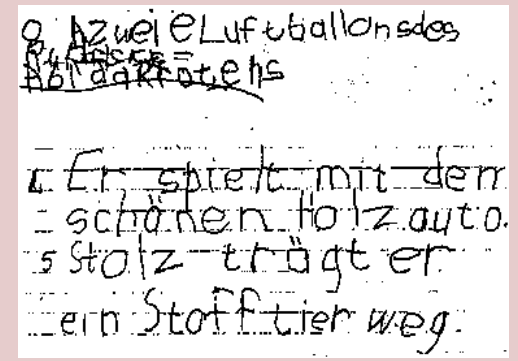 zwei Luftballons des
Er spielt mit dem
schönen Holzauto.
Stolz trägt er
ein Stofftier weg.